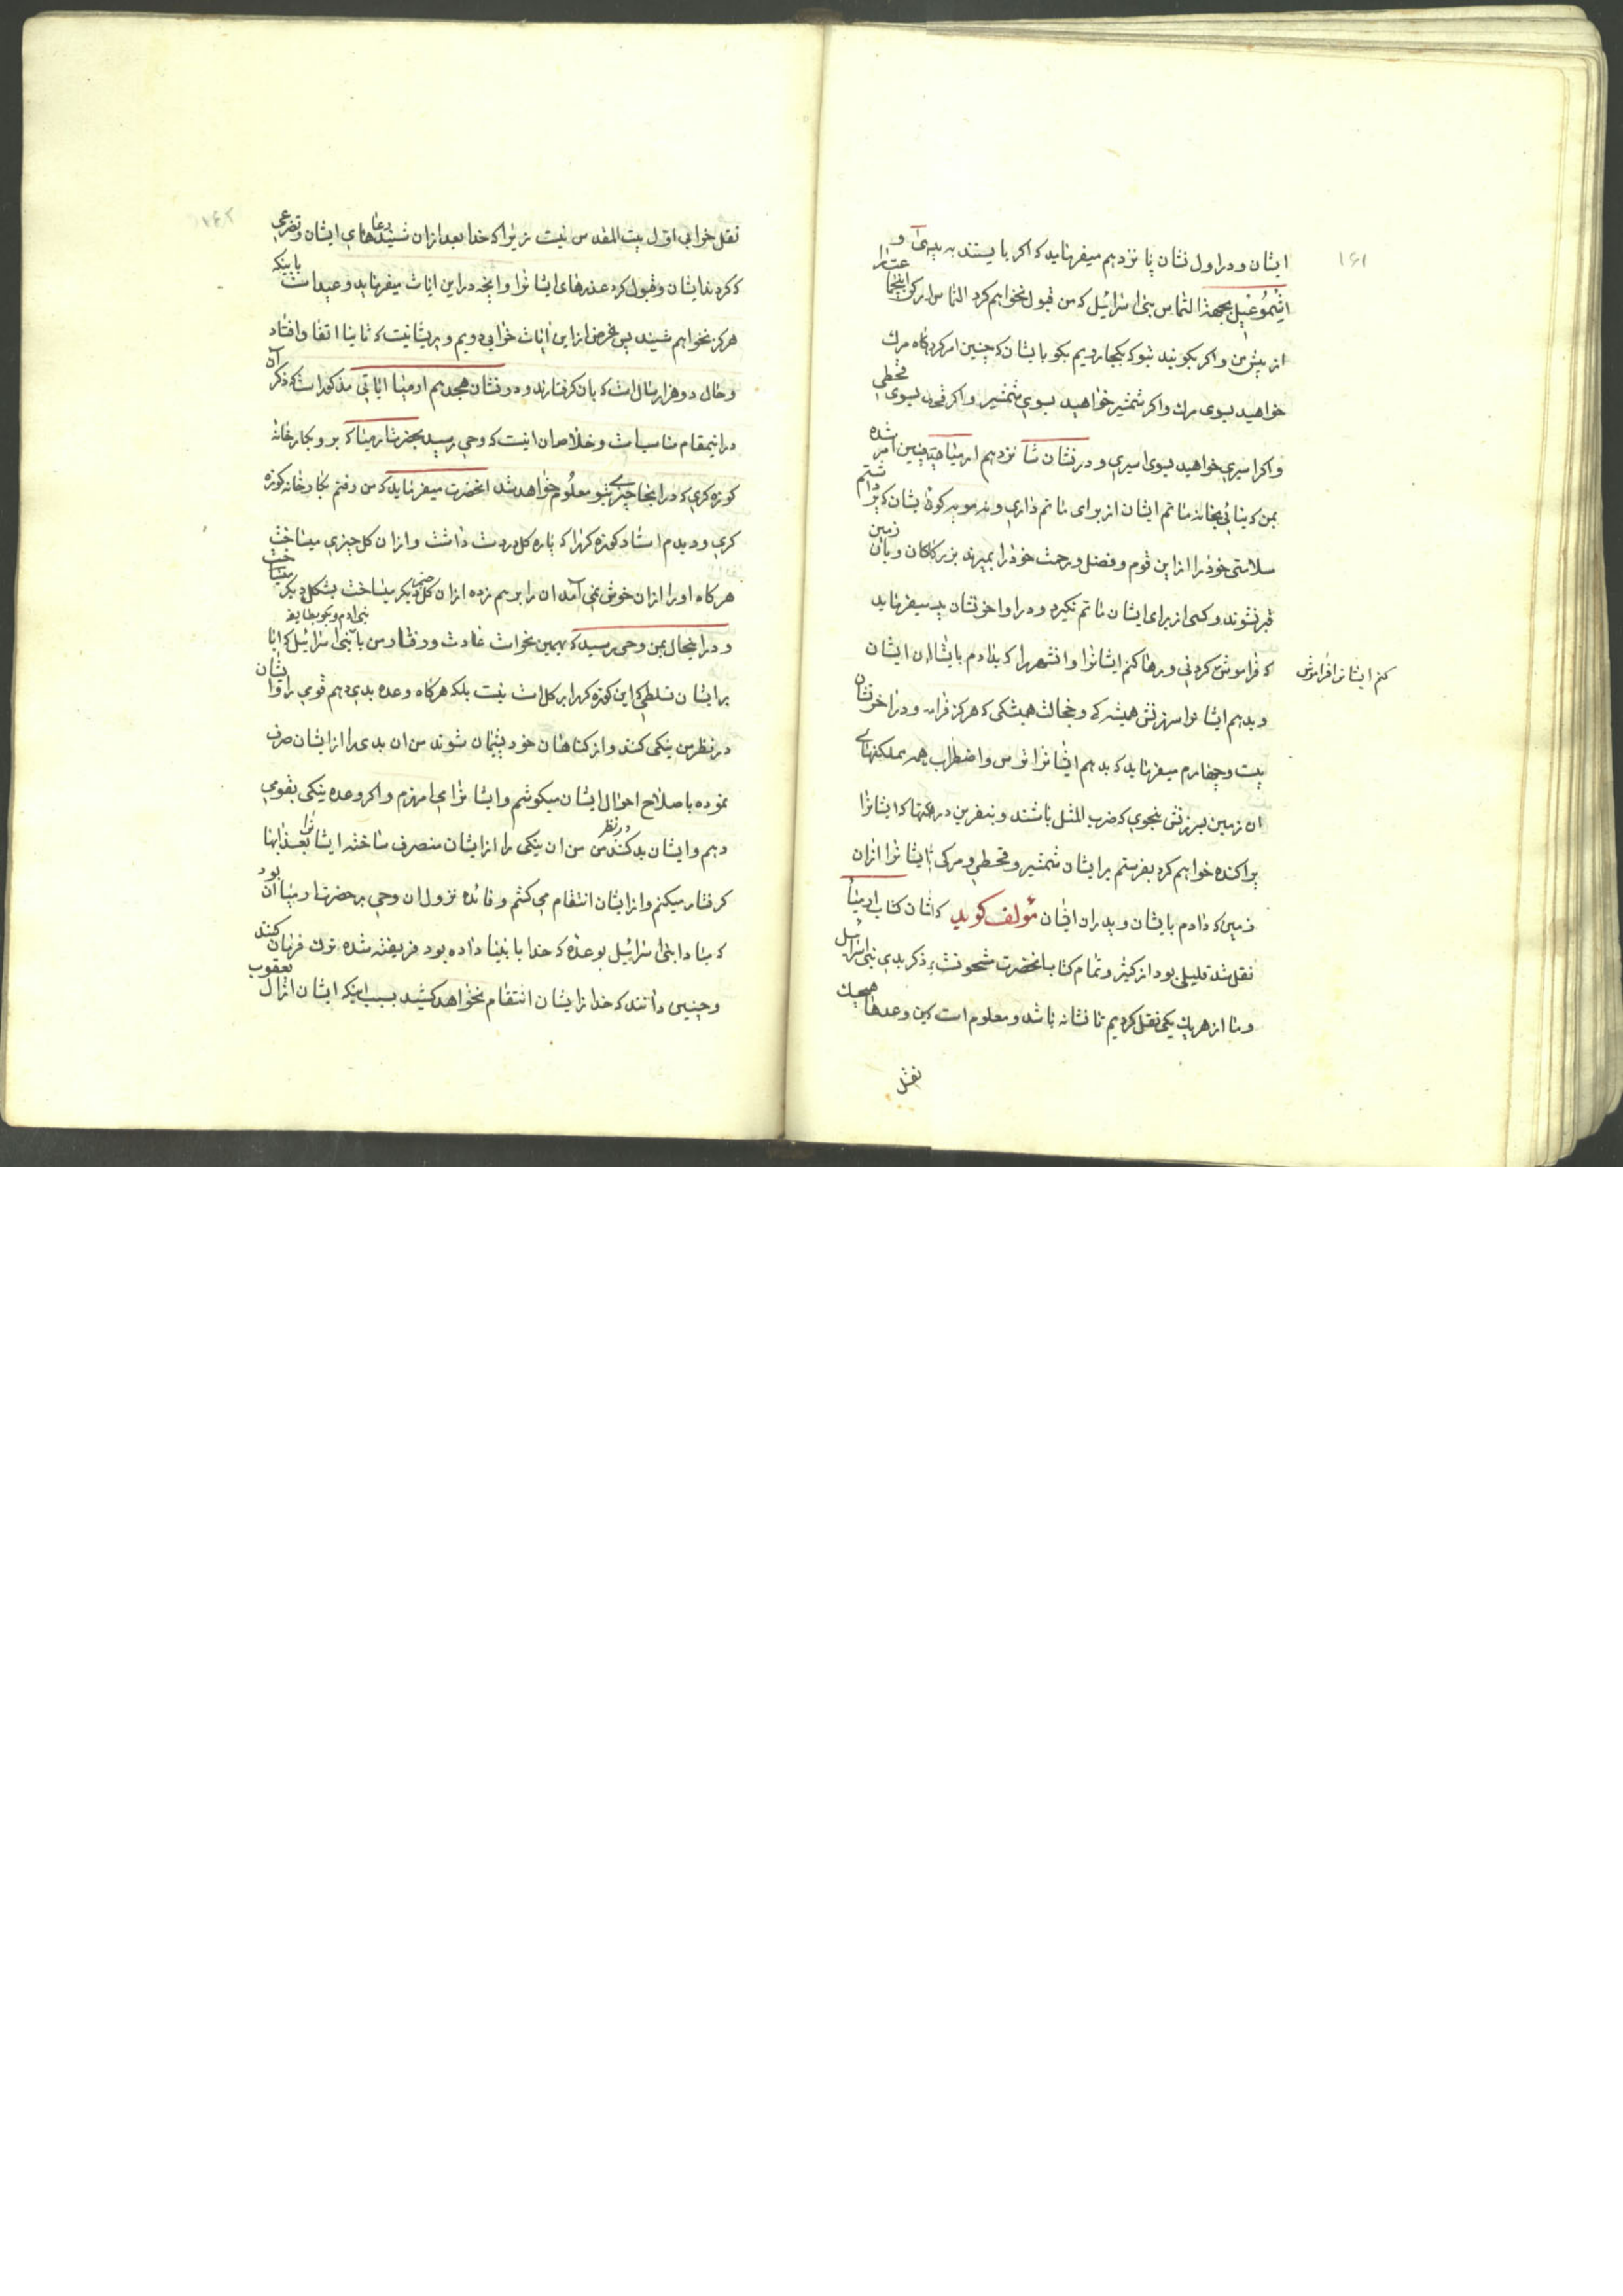 ۱۶۱
ایشان و در اول نشان پانزدهم میفرماید که اکر بایستند به پیدی و
ایشموعیل بجهة التماس بنی اسرائیل که من قبول نخواهم کرد التماس را
از پیش من و اکر بکویند بتو که بکجا رویم بکو بایشان که چنین امر کرد کاه مرك
خواهید بسوی مرك واکر شمشیر خواهید بسوی شمشیر واکر قحطی بسوی قحطی
واکر اسیری خواهید بسوی اسیری و در نشان شانزدهم ارمیا چنین امر شده
بمن که بخانه ماتم ایشان از برای ماتم داری و نه مویه کو ایشان که برداشتم
سلامتی خود را از این قوم و فضل ورحمت خود را بمیرند بزرکان وبان زمین
قبر نشوند وکسی از برای ایشان ماتم نکیرد و در اواخر نشان میفرماید
که فراموش کردنی ورها کنم ایشانرا وانشهر را که دادم بایشان ایشان
کنم ایشانرا فراموش
و بدهم ایشانرا سرزنش همیشه کی وخجالت همیشکی که هرکز و در اخر نشان
بیست وچهارم میفرماید که بدهم ایشانرا ترس واضطراب همه مملکتهای
ان زمین بسرزنش بنحوی که ضرب المثل باشند و بنفرین در که ایشانرا
پراکنده خواهم کرد بفرستم بر ایشان شمشیر و قحطی ومرکی تا ایشانرا ازان
زمین که دادم بایشان و پدران ایشان مؤلف کوید که انان کتاب ارمیا
نقل شد قلیلی بود از کثیر وتمام کتاب انحضرت مشحونست بذکر بدی بنی اسرائیل
وما از هر یك یکی نقل کردیم تا نشانه باشد ومعلوم است که این وعدها هیچیك
نقل
۱۶۲
نقل خوابی اول بیت المقدس نیست زیرا که خدا بعد ازان شنید دعاهای ایشان و تضرعی
که کردند ایشان وقبول کرد عذرهای ایشانرا وانچه در این ایات میفرماید وعید است باینکه
هرکز نخواهم شنید پس غرض از این ایات خرابی دویم و پریشانیست که ثانیا اتفاق افتاد
وحال دو هزار سال است که بان کرفتارند و در نشان هجدهم ارمیا ایاتی مذکور است که ذکر آن
در اینمقام مناسب است وخلاصه ان اینست که وحی رسید بحضرت ارمیا که برو بکارخانه
کوزه کری که در انجا چیزی بتو معلوم خواهد شد انحضرت میفرماید که من رفتم بکارخانه کوزه
کری ودیدم استاد کوزه کر را که پاره کل در دست داشت وازان کل چیزی میساخت
هرکاه او را ازان خوش نمی آمد ان را برهم زده ازان کل چیز دیکر میساخت بشکل دیکر میساخت
و در اینحال بمن وحی رسید که بهمین نحو است عادت ورفتار من با بنی اسرائیل که ایا
بنی ادم وبکو بطایفه
بر ایشان تسلطی که این کوزه کر را بر کل است نیست بلکه هرکاه وعده بدی دهم قومی را و ایشان
در نظر من نیکی کنند واز کناهان خود پشیمان شوند من ان بدی را از ایشان صرف
نموده باصلاح احوال ایشان میکوشم وایشانرا می امرزم واکر وعده نیکی بقومی
دهم وایشان بد کنند در نظر من من ان نیکی را از ایشان منصرف ساخته ایشانرا بعذابها
کرفتار میکنم واز ایشان انتقام می کشم وفائده نزول ان وحی بر حضرت ارمیا ان بود
که مبادا بنی اسرائیل بوعده که خدا بانبیا داده بود فریفته شده ترك فرمان کنند
وچنین دانند که خدا از ایشان انتقام نخواهد کشید بسبب اینکه ایشان از ال یعقوب